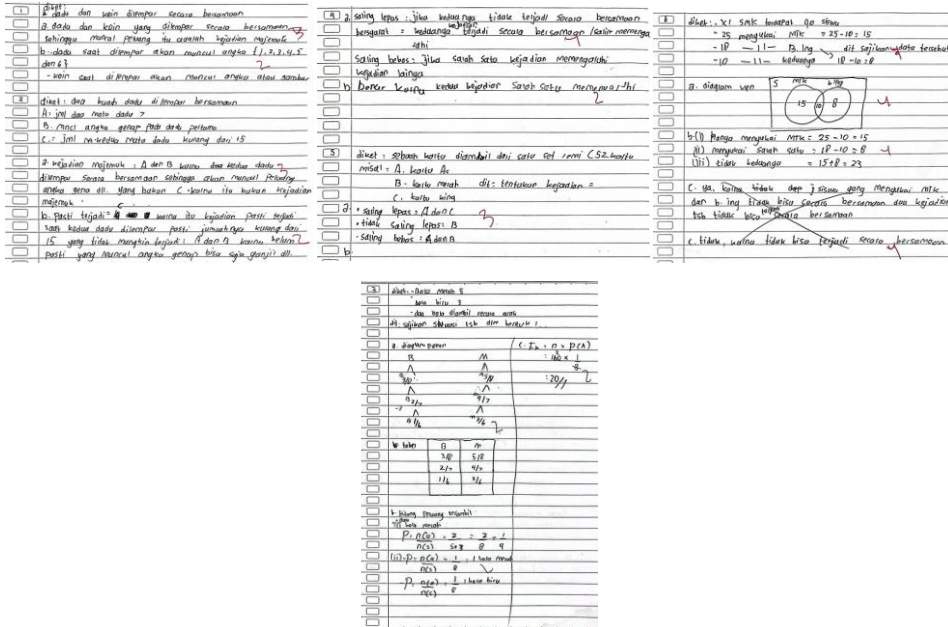 1
diket:
a. dadu dan koin dilempar secara bersamaan
a. dadu dan koin yang dilempar secara bersamaan 3
sehingga muncul peluang itu adalah kejadian majemuk
b. dadu saat dilempar akan muncul angka {1,2,3,4,5
dan 6}
2
- koin saat dilempar akan muncul angka atau gambar
2
diket: dua buah dadu dilempar bersamaan
A: jml dua mata dadu 7
B. angka genap pada dadu pertama
C. = jml mata dadu kurang dari 15
a. kejadian majemuk : A dan B karna dua kedua dadu 3
dilempar secara bersamaan sehingga akan muncul peluang
angka dll. yang bukan C karna itu bukan kejadian
majemuk.
b. pasti terjadi = C karna itu kejadian pasti terjadi
saat kedua dadu dilempar pasti jumlahnya kurang dari
15 yang tidak mungkin terjadi : A dan B karna belum 2
pasti yang muncul angka genap bisa saja ganjil dll.
4
a. saling lepas : jika keduanya tidak terjadi secara bersamaan
bersyarat = keduanya terjadi secara bersamaan / saling
4
saling bebas = jika salah satu kejadian
kejadian lainya
b Benar karna kedua kejadian salah satu
2
5
diket : sebuah kartu diambil dari satu set remi (52 kartu
misal : A. kartu As
B. kartu merah dit: tentukan kejadian =
C. kartu king
a. • saling lepas : A dan C
• tidak saling lepas : B 3
- saling bebas : A dan B
b.
6
diket : XI SMK terdapat 40 siswa
- 25 menyukai MTK = 25-10 = 15
- 18 —11— B.Ing dit sajikan data tersebut
- 10 —11— keduanya 18-10=8
a. diagram ven
S MTK B.ing
15 10 8
4
b.(i) Hanya menyukai MTK = 25-10 = 15
(ii) menyukai salah satu = 18-10 = 8 4
(iii) tidak keduanya = 15+8 = 23
c. ya, karna tidak siswa yang menyukai MTK
dan B.ing tidak bisa secara bersamaan dua kejadian
tsb tidak bisa terjadi secara bersamaan
c. tidak, karna tidak bisa terjadi secara bersamaan
4
3
diket : - Bola merah 5
bola biru 3
- dua bola diambil secara acak
dit: sajikan situasi tsb dlm bentuk !
a. diagram pohon
B M
3/8 5/8
2/7 4/7
1/6 3/6
2
c. Fh = n × P(A)
: 160 × 1/8
: 20 //
2
b tabel
B M
3/8 5/8
2/7 4/7
1/6 3/6
b. hitung peluang
(i) bola merah
P = n(a)/n(s) = 2/5+3 = 2/8 = 1/4
(ii) P = n(a)/n(s) = 1/8 : 1 bola merah
- P = n(a)/n(s) = 1/8 : 1 bola biru